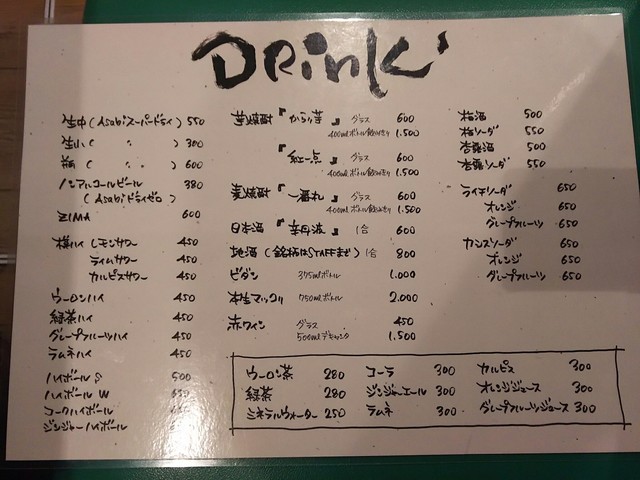 DRinK
生中(Asahiスーパードライ) 550
生小( 〃 〃 ) 300
瓶( 〃 〃 ) 600
ノンアルコールビール 380
(Asahiドライゼロ)
ZIMA 600
樽ハイレモンサワー 450
ライムサワー 450
カルピスサワー 450
ウーロンハイ 450
緑茶ハイ 450
グレープフルーツハイ 450
ラムネハイ 450
ハイボール S 500
ハイボール W
コークハイボール
ジンジャーハイボール
芋焼酎『からり芋』 グラス 600
400mlボトル飲みきり 1.500
『紅一点』 グラス 600
400mlボトル飲みきり 1.500
麦焼酎『一番丸』 グラス 600
400mlボトル飲みきり 1.500
日本酒『辛丹波』 1合 600
地酒(銘柄はSTAFFまで) 1合 800
ビダン 375mlボトル 1.000
本生マッコリ 750mlボトル 2.000
赤ワイン グラス 450
500mlデキャンタ 1.500
梅酒 500
梅ソーダ 550
杏露酒 500
杏露ソーダ 550
ライチソーダ 650
オレンジ 650
グレープフルーツ 650
カシスソーダ 650
オレンジ 650
グレープフルーツ 650
ウーロン茶 280 コーラ 300 カルピス 300
緑茶 280 ジンジャーエール 300 オレンジジュース 300
ミネラルウォーター 250 ラムネ 300 グレープフルーツジュース 300